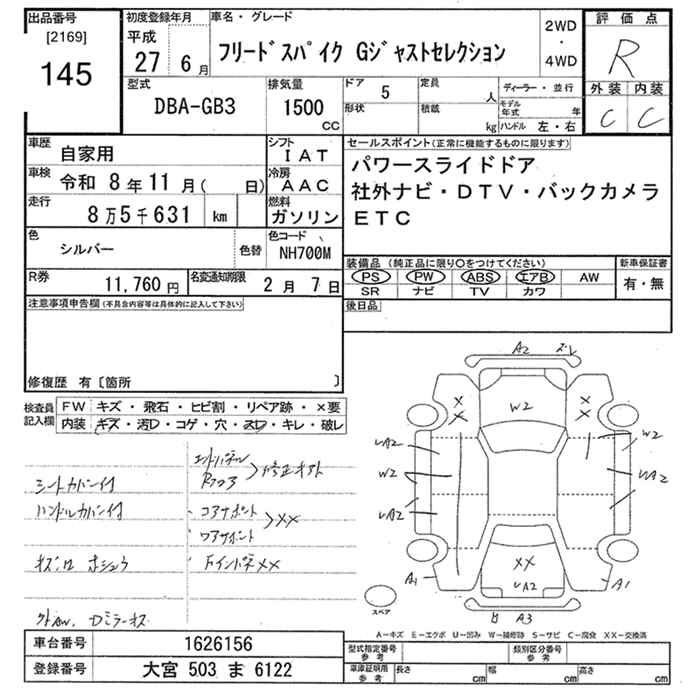 出品番号
[2169]
145
初度登録年月
平成
27 6月
車名・グレード
フリードスパイク Gジャストセレクション
2WD
・
4WD
評価点
R
外装 内装
C C
型式
DBA-GB3
排気量
1500
CC
ドア 5
形状
定員 人
積載 kg
ディーラー・並行
モデル年式 年
ハンドル 左・右
車歴 自家用
車検 令和 8年11月( 日)
走行 8万5千631 km
シフト IAT
冷房 AAC
燃料 ガソリン
色 シルバー
色替
色コード NH700M
R券 11,760円
名変通知期限 2月 7日
セールスポイント(正常に機能するものに限ります)
パワースライドドア
社外ナビ・DTV・バックカメラ
ETC
装備品 (純正品に限り○をつけてください)
PS PW ABS エアB AW
SR ナビ TV カワ
新車保証書
有・無
後日品
注意事項申告欄(不具合内容等は具体的に記入して下さい)
修復歴 有〔箇所 〕
検査員記入欄
FW キズ・飛石・ヒビ割・リペア跡・×要
内装 キズ・汚レ・コゲ・穴・スレ・キレ・破レ
シートカバー付
ハンドルカバー付
コアサポート
ロアサポート
>××
A2
W2
××
UA2
W2
UA2
W2
UA2
××
UA2
A1
A1
A3
スペア
A－キズ E－エクボ U－凹み W－補修跡 S－サビ C－腐食 XX－交換済
車台番号 1626156
登録番号 大宮 503 ま 6122
型式指定番号 参考
類別区分番号 参考
車庫証明用 参考
長さ cm
幅 cm
高さ cm